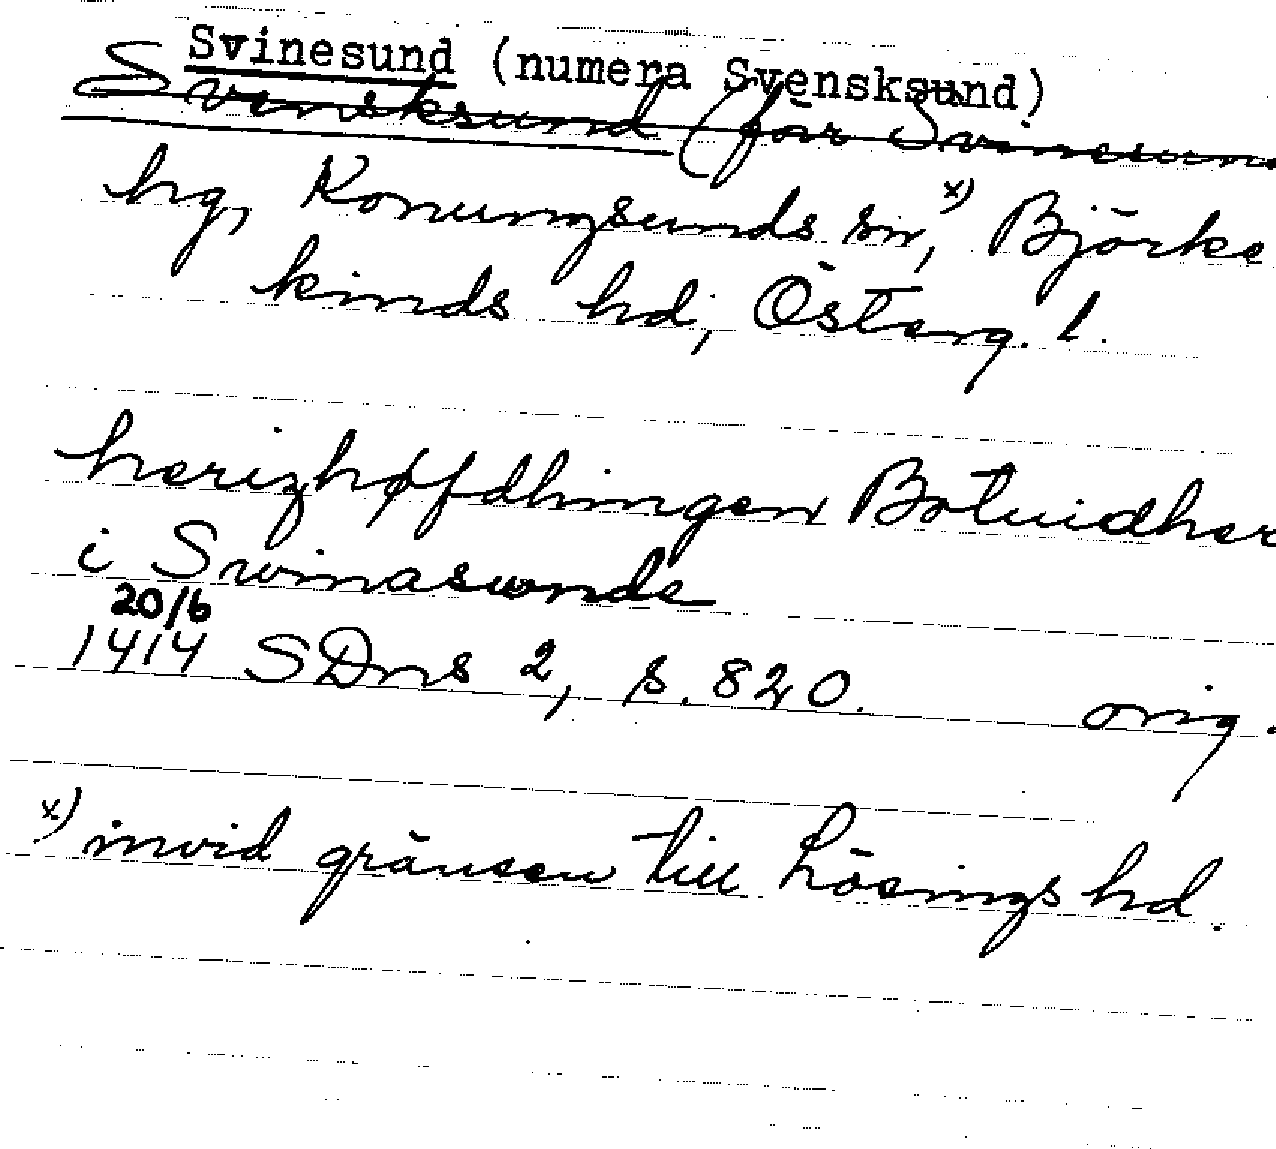 Svinesund (numera Svensksund)
Svensksund (för Svinesun
hg, Konungsunds sn,x) Björke
kinds hd, Österg. l.
herizhøfdhingen Botuidher
i Swinasunde
20/6
1414 SDns 2, s. 820. orig.
x) invid gränsen till Lösings hd.